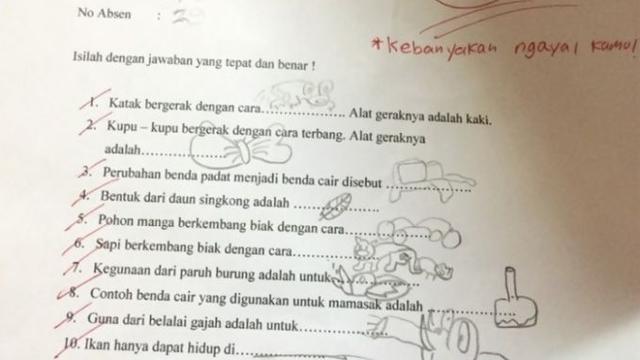 No Absen : 
*kebanyakan ngayal kamu!
Isilah dengan jawaban yang tepat dan benar !
1. Katak bergerak dengan cara.................. Alat geraknya adalah kaki.
2. Kupu – kupu bergerak dengan cara terbang. Alat geraknya
adalah..................
3. Perubahan benda padat menjadi benda cair disebut ..................
4. Bentuk dari daun singkong adalah ..................
5. Pohon manga berkembang biak dengan cara..................
6. Sapi berkembang biak dengan cara..................
7. Kegunaan dari paruh burung adalah untuk..................
8. Contoh benda cair yang digunakan untuk mamasak adalah ..................
9. Guna dari belalai gajah adalah untuk..................
10. Ikan hanya dapat hidup di..................